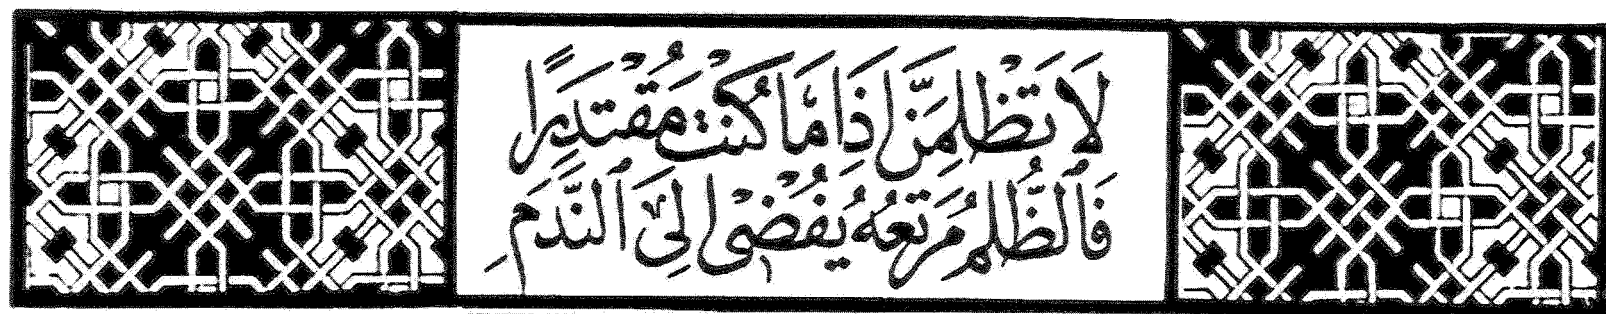 لَا تَظْلِمَنَّ إِذَا مَا كُنْتَ مُقْتَدِرًا
فَٱلظُّلْمُ مَرْتَعُهُ يُفْضِى إِلَى ٱلنَّدَمِ